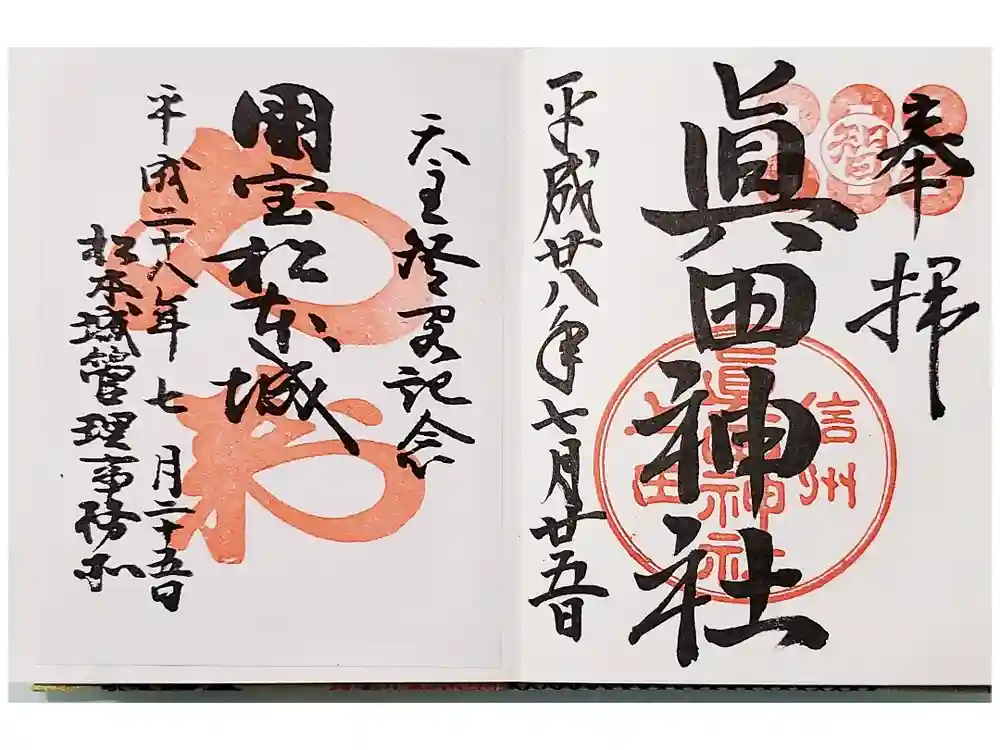 奉拝
眞田神社
平成廿八年七月廿五日
智
信州
上田
眞田神社
天主登閣記念
國宝松本城
平成二十八年七月二十五日
松本城管理事務所